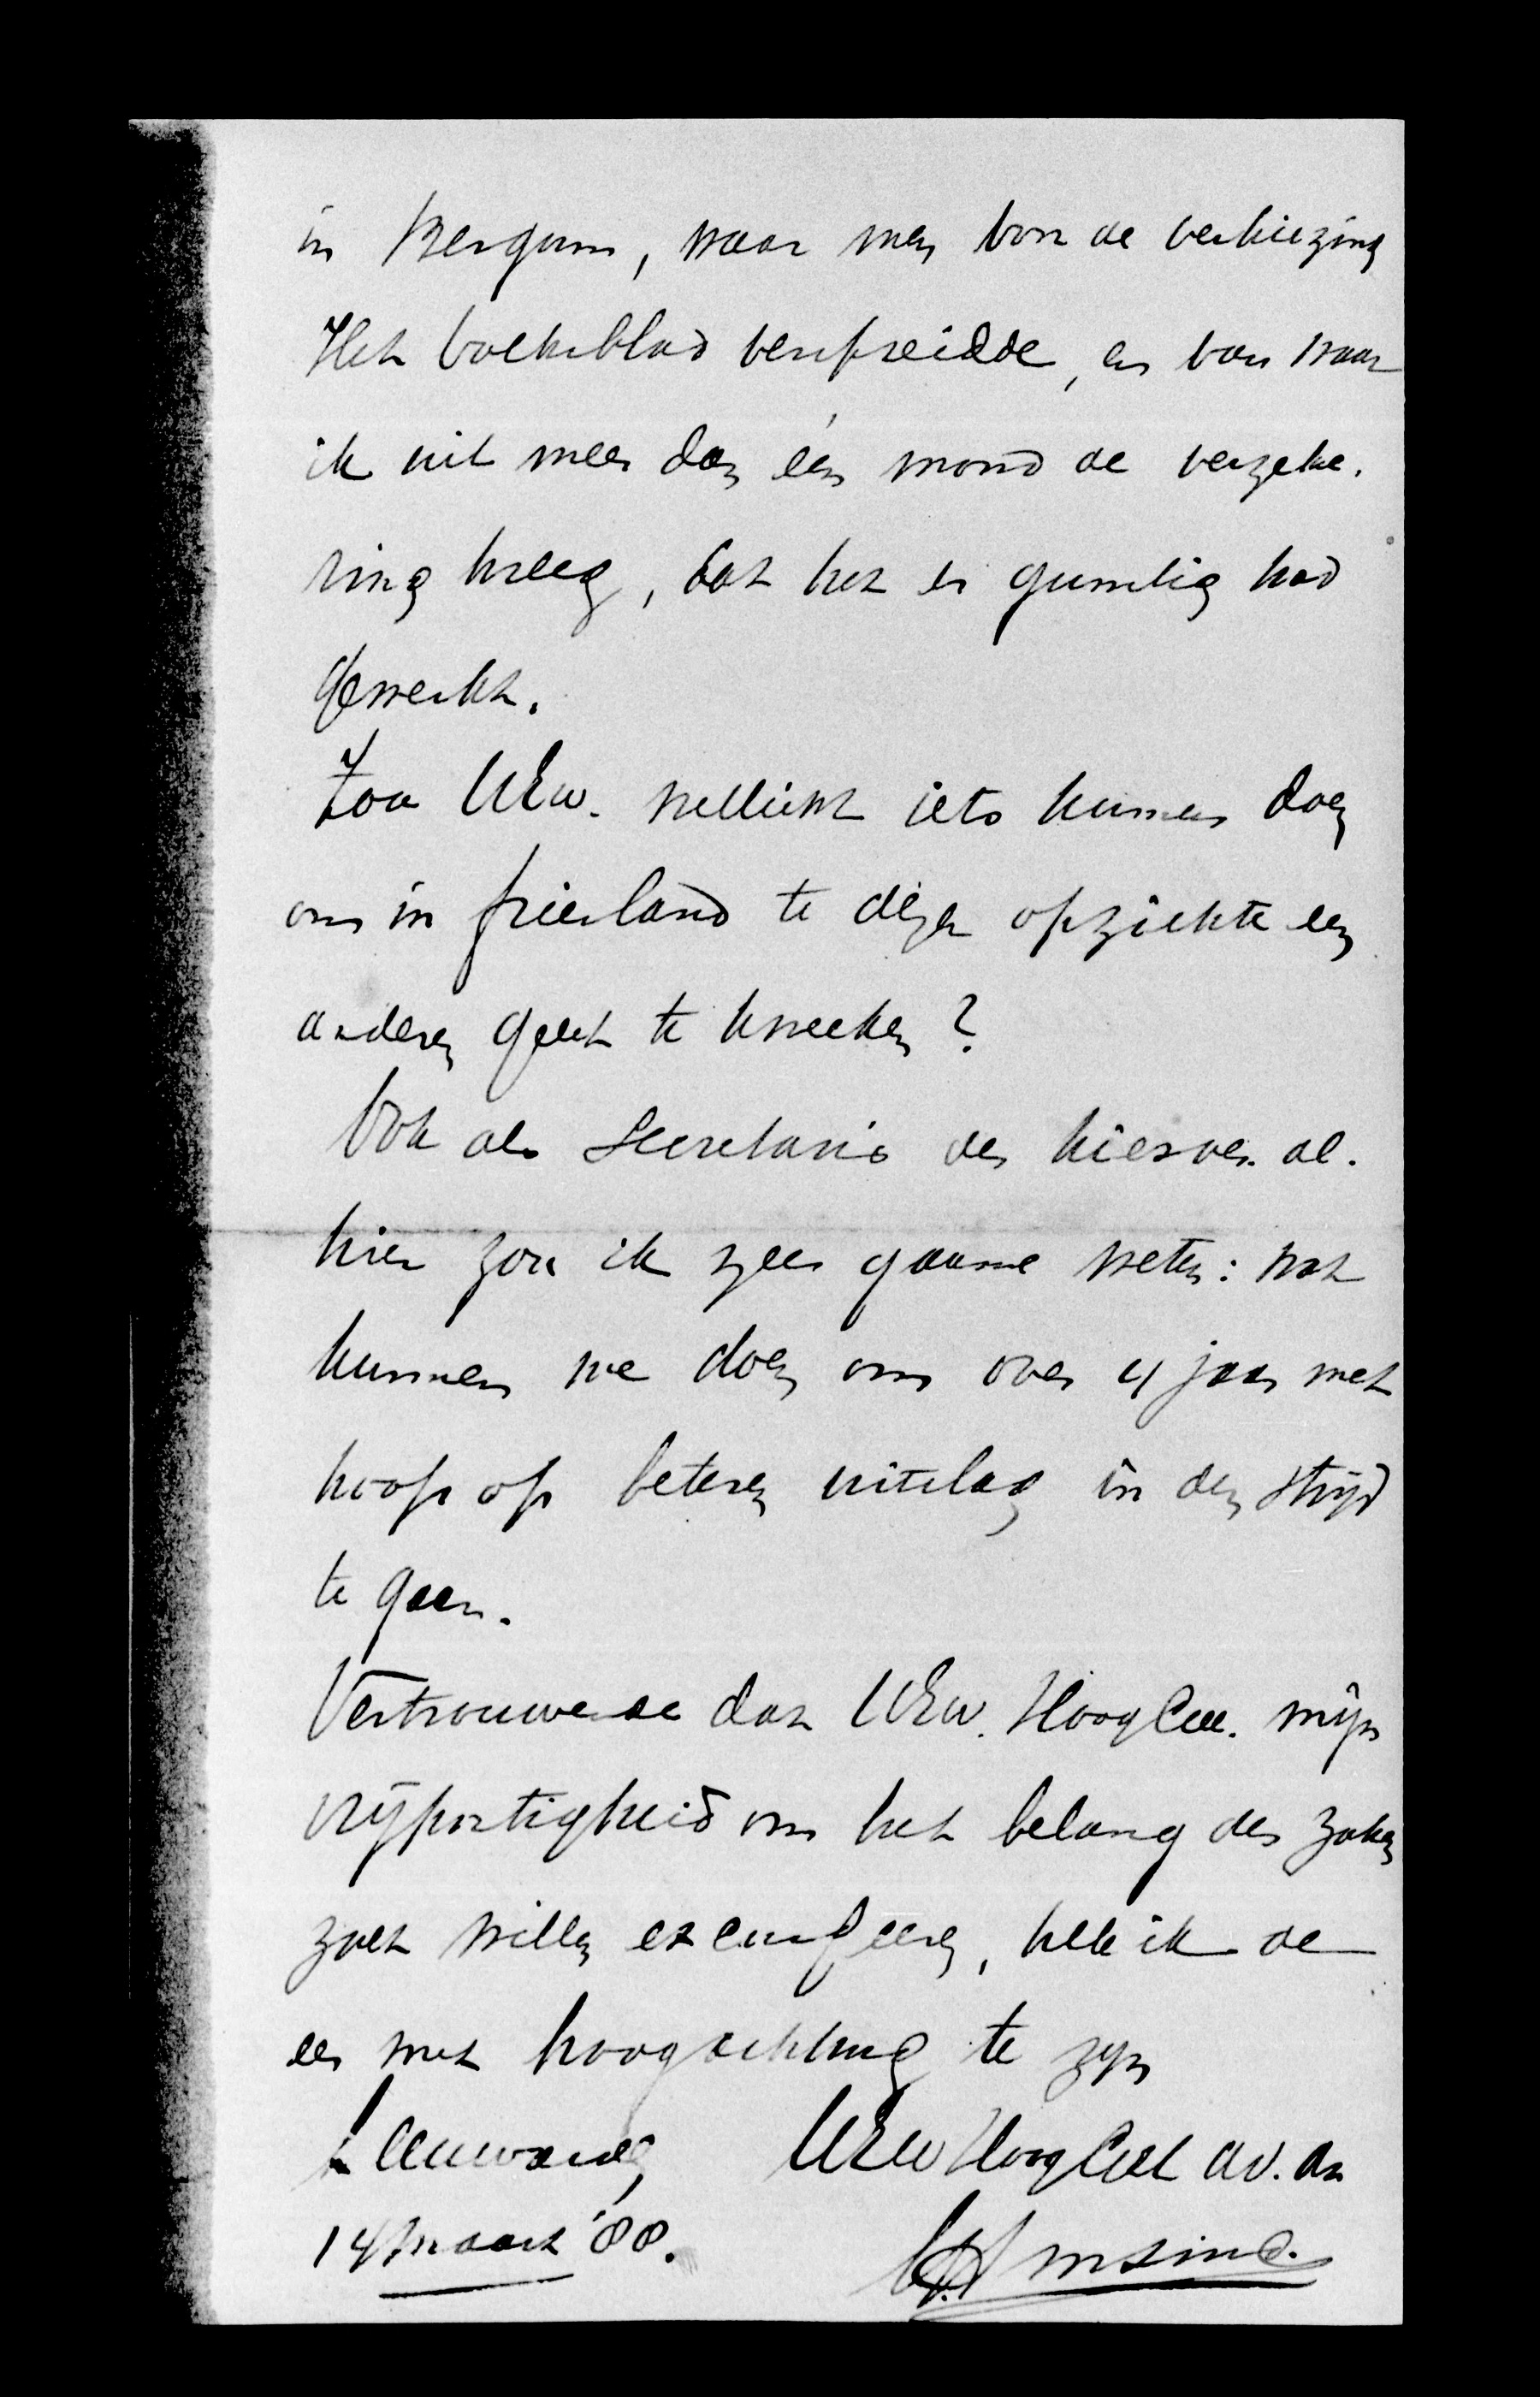 in Bergum, waar men voor de verkiezing
Het Volksblad verspreidde, en van waar
ik uit meer dan één mond de verzeke-
ring kreeg, dat het er gunstig had
gewerkt.
Zou UEw. wellicht iets kunnen doen
om in Friesland te dezer opzichte een
anderen geest te kweeken?
Ook als Secretaris der Kiesver. al-
hier zou ik zeer gaarne weten: wat
kunnen we doen om over 4 jaar met
hoop op beteren uitslag in den strijd
te gaan.
Vertrouwende dat UEw. HoogGel. mijn
vrijpostigheid om het belang der zaken
zult willen excuseeren, heb ik de
eer met hoogachting te zijn
Leeuwarden, UEw HoogGel dv. dn
14 Maart '88.